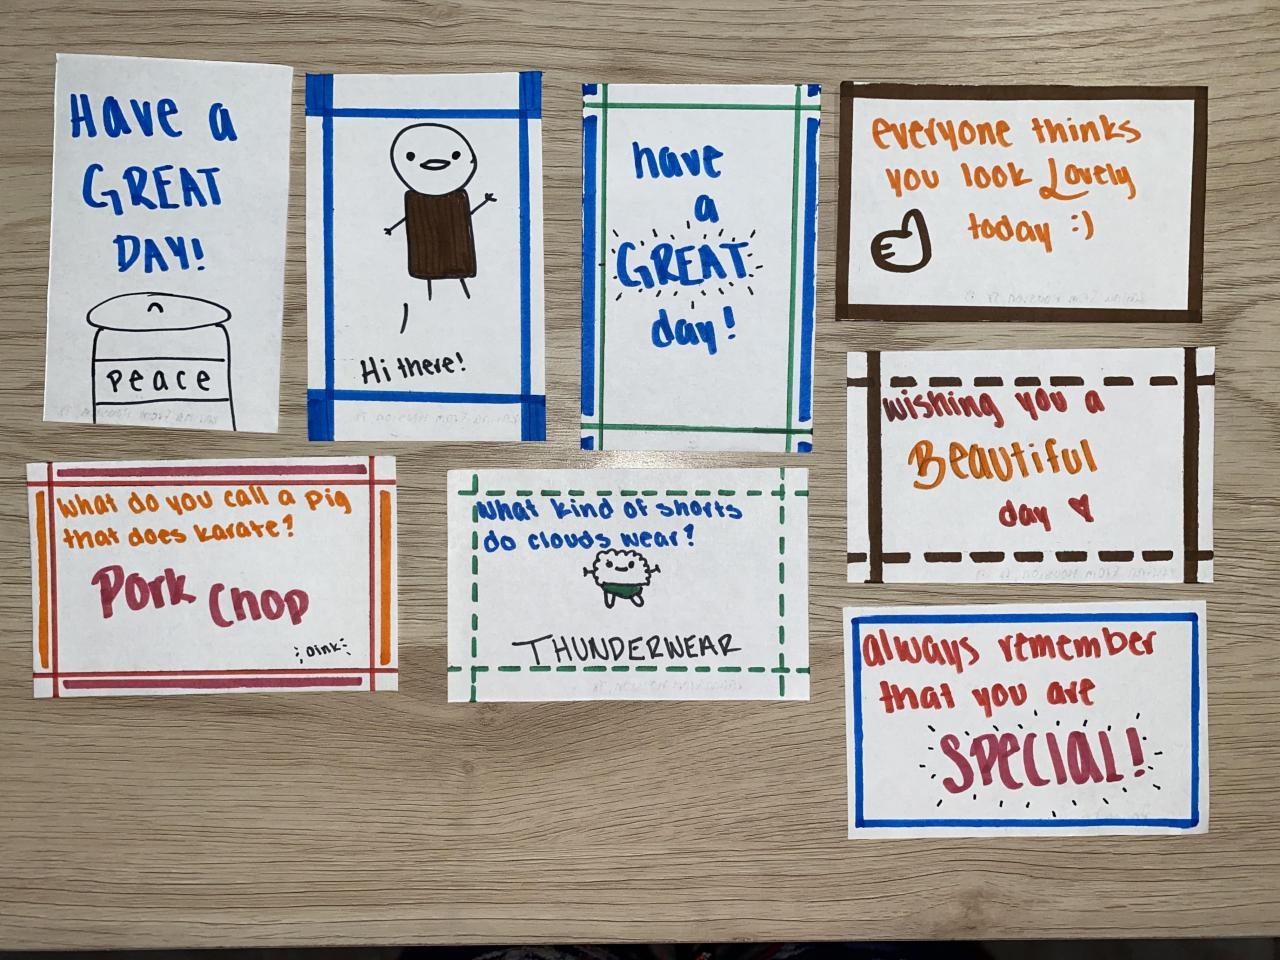 Have a
GREAT
DAY!
peace
Hi there!
have
a
GREAT
day!
everyone thinks
you look Lovely
today :)
wishing you a
Beautiful
day ♥
What do you call a pig
that does karate?
Pork Chop
oink
What kind of shorts
do clouds wear?
THUNDERWEAR
always remember
that you are
SPECIAL!